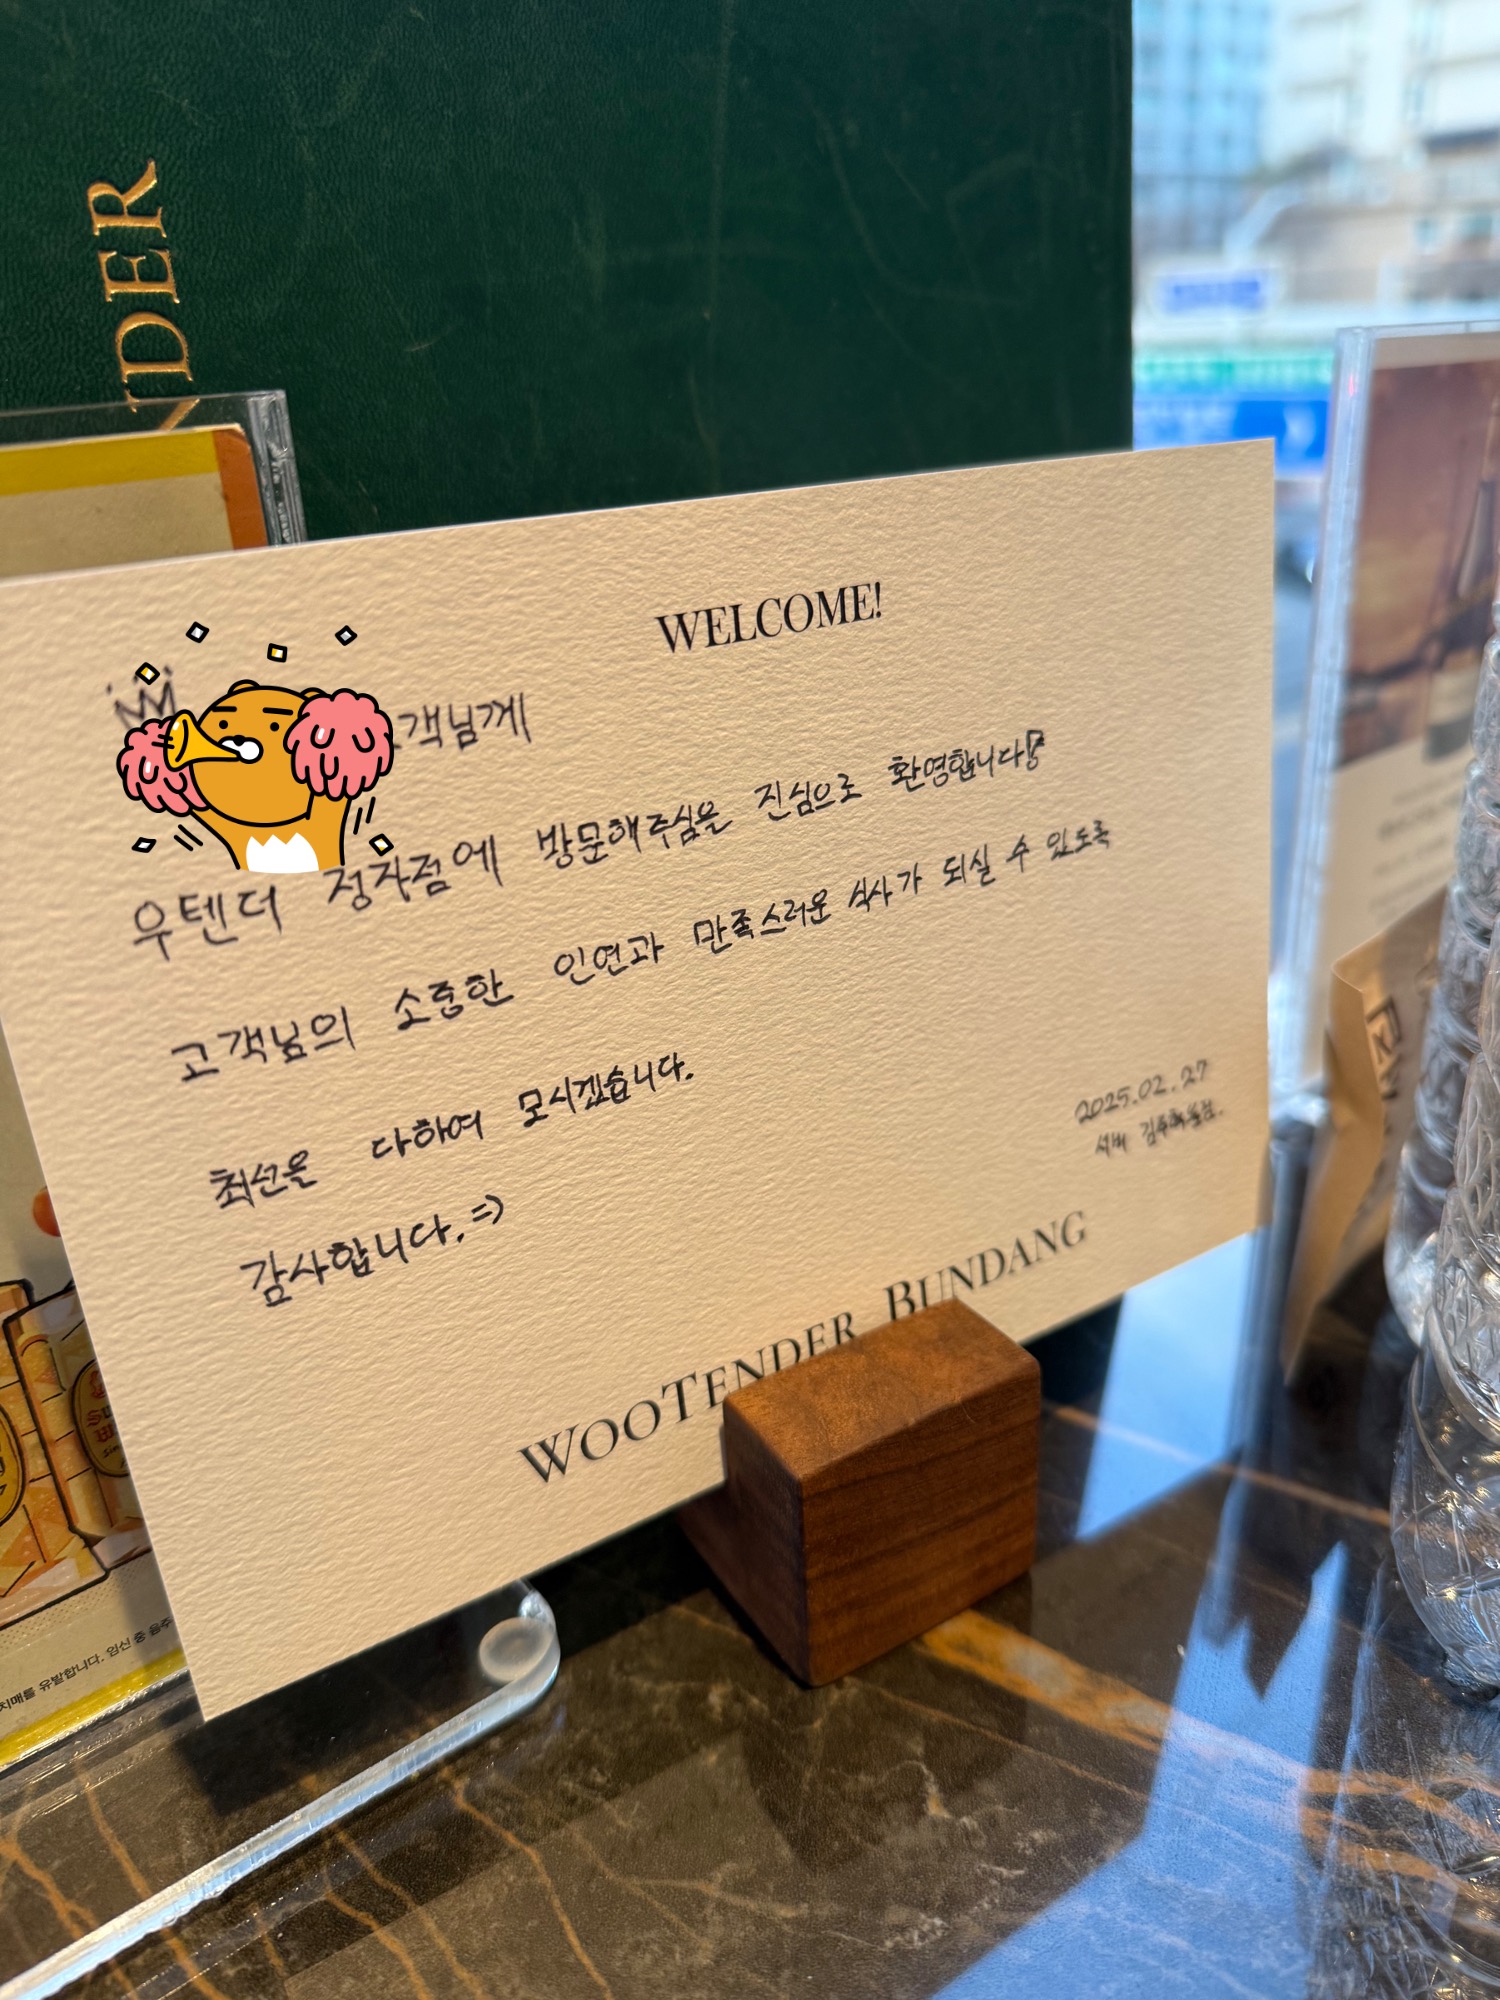 NDER
WELCOME!
고객님께
우텐더 정자점에 방문해주심을 진심으로 환영합니다!
고객님의 소중한 인연과 만족스러운 식사가 되실 수 있도록
최선을 다하여 모시겠습니다.
감사합니다. =)
2025.02.27
서버
WOOTENDER BUNDANG
치매를 유발합니다. 임신 중 음주